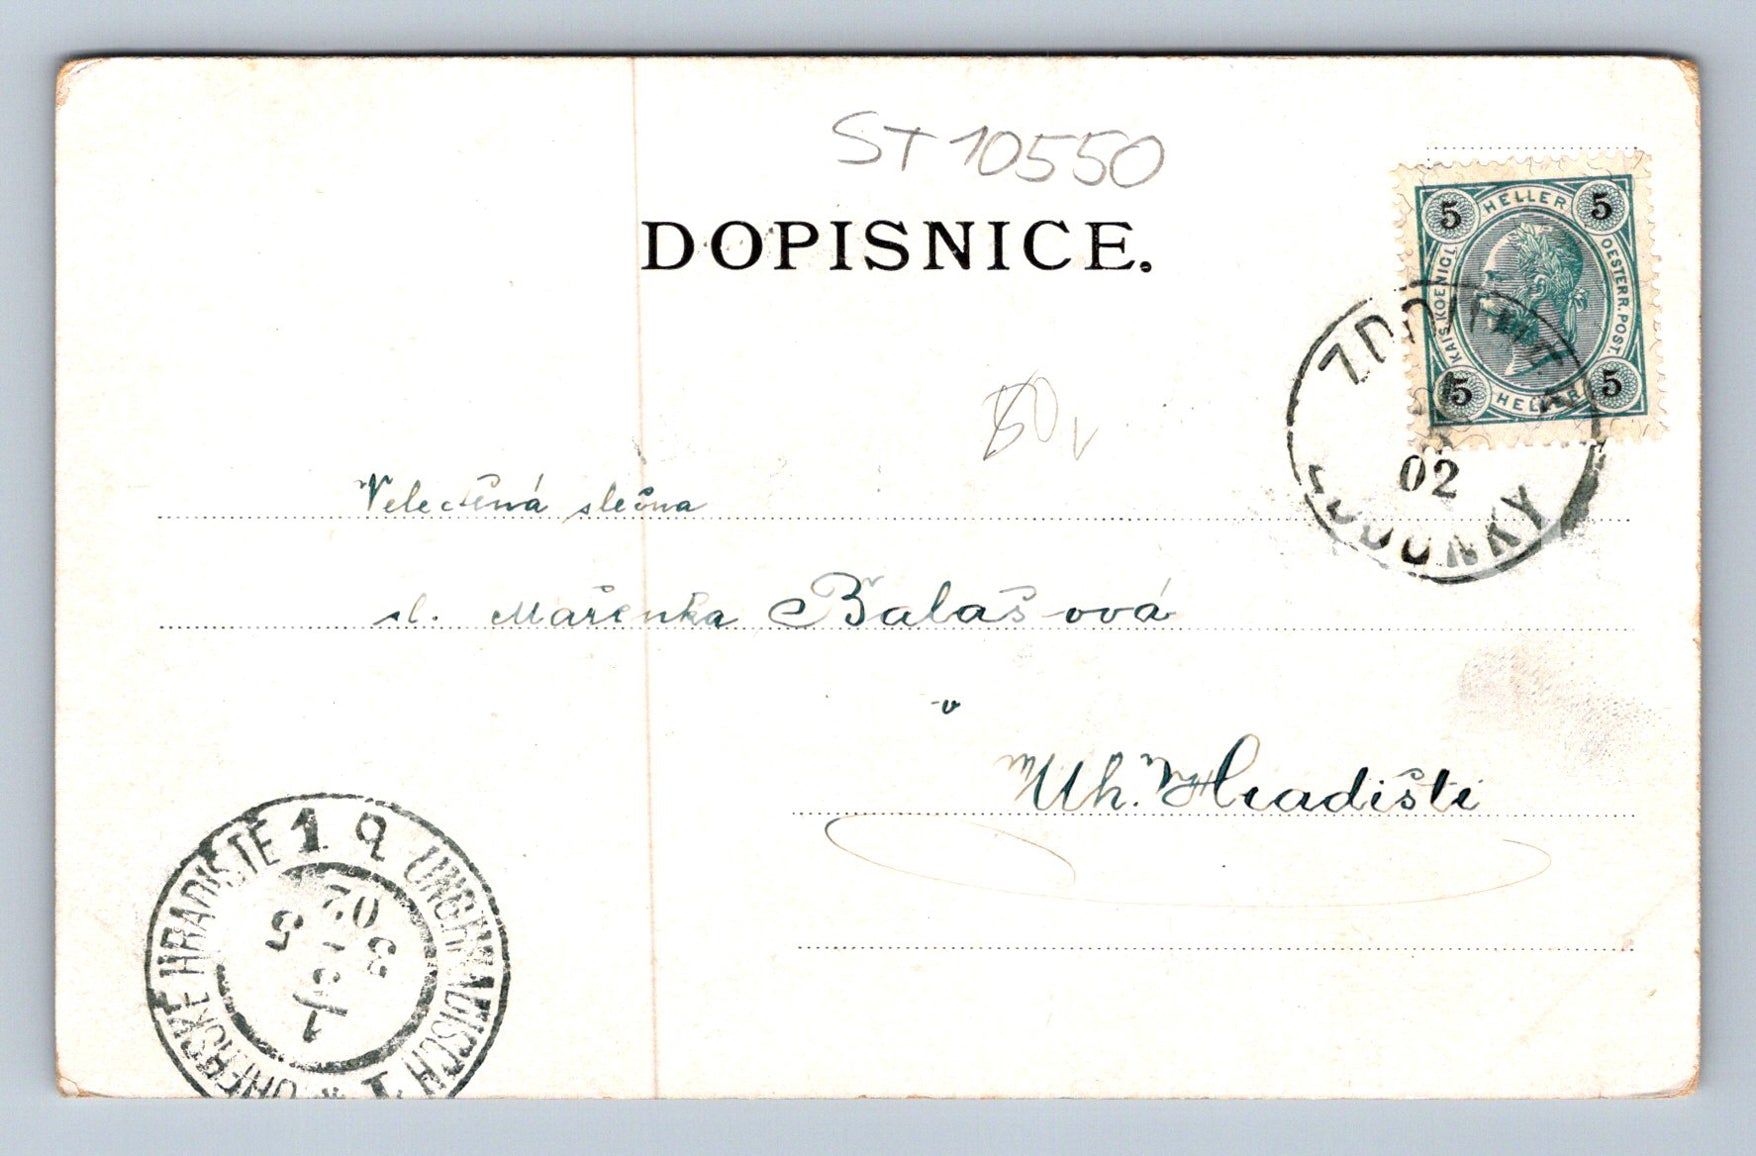 ST 10550
DOPISNICE.
5 HELLER 5
KAIS. KOENIGL. OESTERR. POST.
5 HELLER 5
02
50
Velectěná slečna
sl. Mařenka Balašová
v
Uh. Hradišti
UHERSKÉ HRADIŠTĚ 1
UNG.
02
5
3